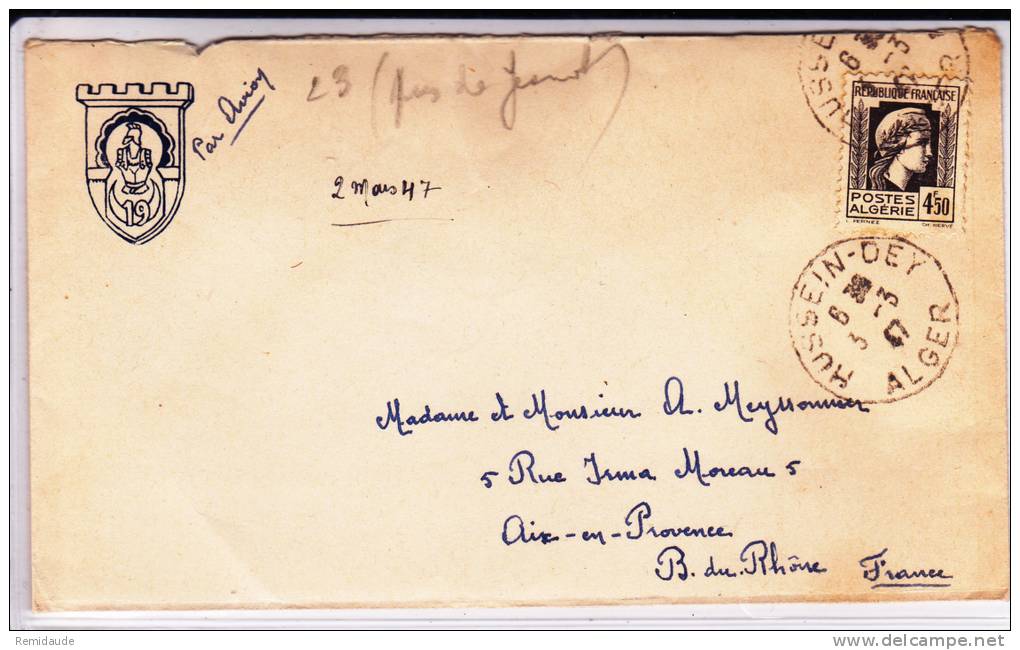 Par Avion
23 (
2 Mars 47
19
REPUBLIQUE FRANÇAISE
POSTES
ALGÉRIE
4F50
HUSSEIN-DEY
6
3 -3
47
ALGER
Madame et Monsieur A. Meyssonnier
5 Rue Irma Moreau 5
Aix-en-Provence
B. du. Rhône France
Remidaude
www.delcampe.net